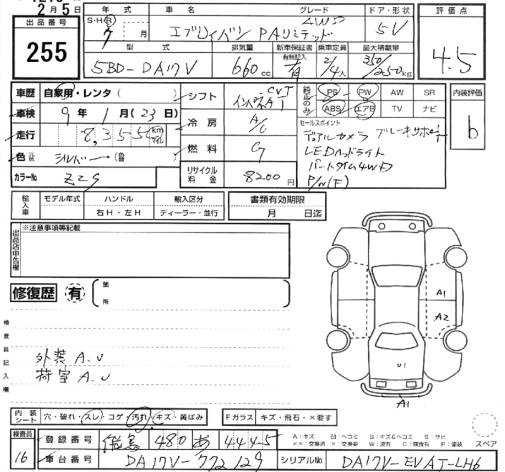 月5日
出品番号
255
年式 車名 グレード ドア・形状
S・H・R 7 月 エブリイバン PAリミテッド 4WD 5V
型式 排気量 新車保証書 有無記入 乗車定員 最大積載量
5BD-DA17V 660cc 有 2/4人 350/250kg
評価点
4.5
車歴 自家用・レンタ( )
車検 9年 1月(23)日
走行 8,355 km マイル
色 シルバー
カラーNo Z2S
シフト インパネAT CVT
冷房 A/C
燃料 G
リサイクル料金 8200円
PS PW AW SR
ABS エアB TV ナビ
セールスポイント
デュアルカメラ ブレーキサポート
LEDヘッドライト
パートタイム4WD
P/W(F)
内装評価
b
輸入車 モデル年式 ハンドル 輸入区分 書類有効期限
年 右H・左H ディーラー・並行 月 日迄
※注意事項等記載
修復歴 有 箇所
検査員記入欄
外装 A.U
荷室 A.U
A1
A2
U1
A1
内装シート 穴・破れ・スレ・コゲ・汚れ・キズ・黄ばみ
Fガラス キズ・飛石・×要す
スペア
検査員 16
登録番号 480 あ 444-5
車台番号 DA17V-772129
シリアルNo DA17V-EVAT-LH6